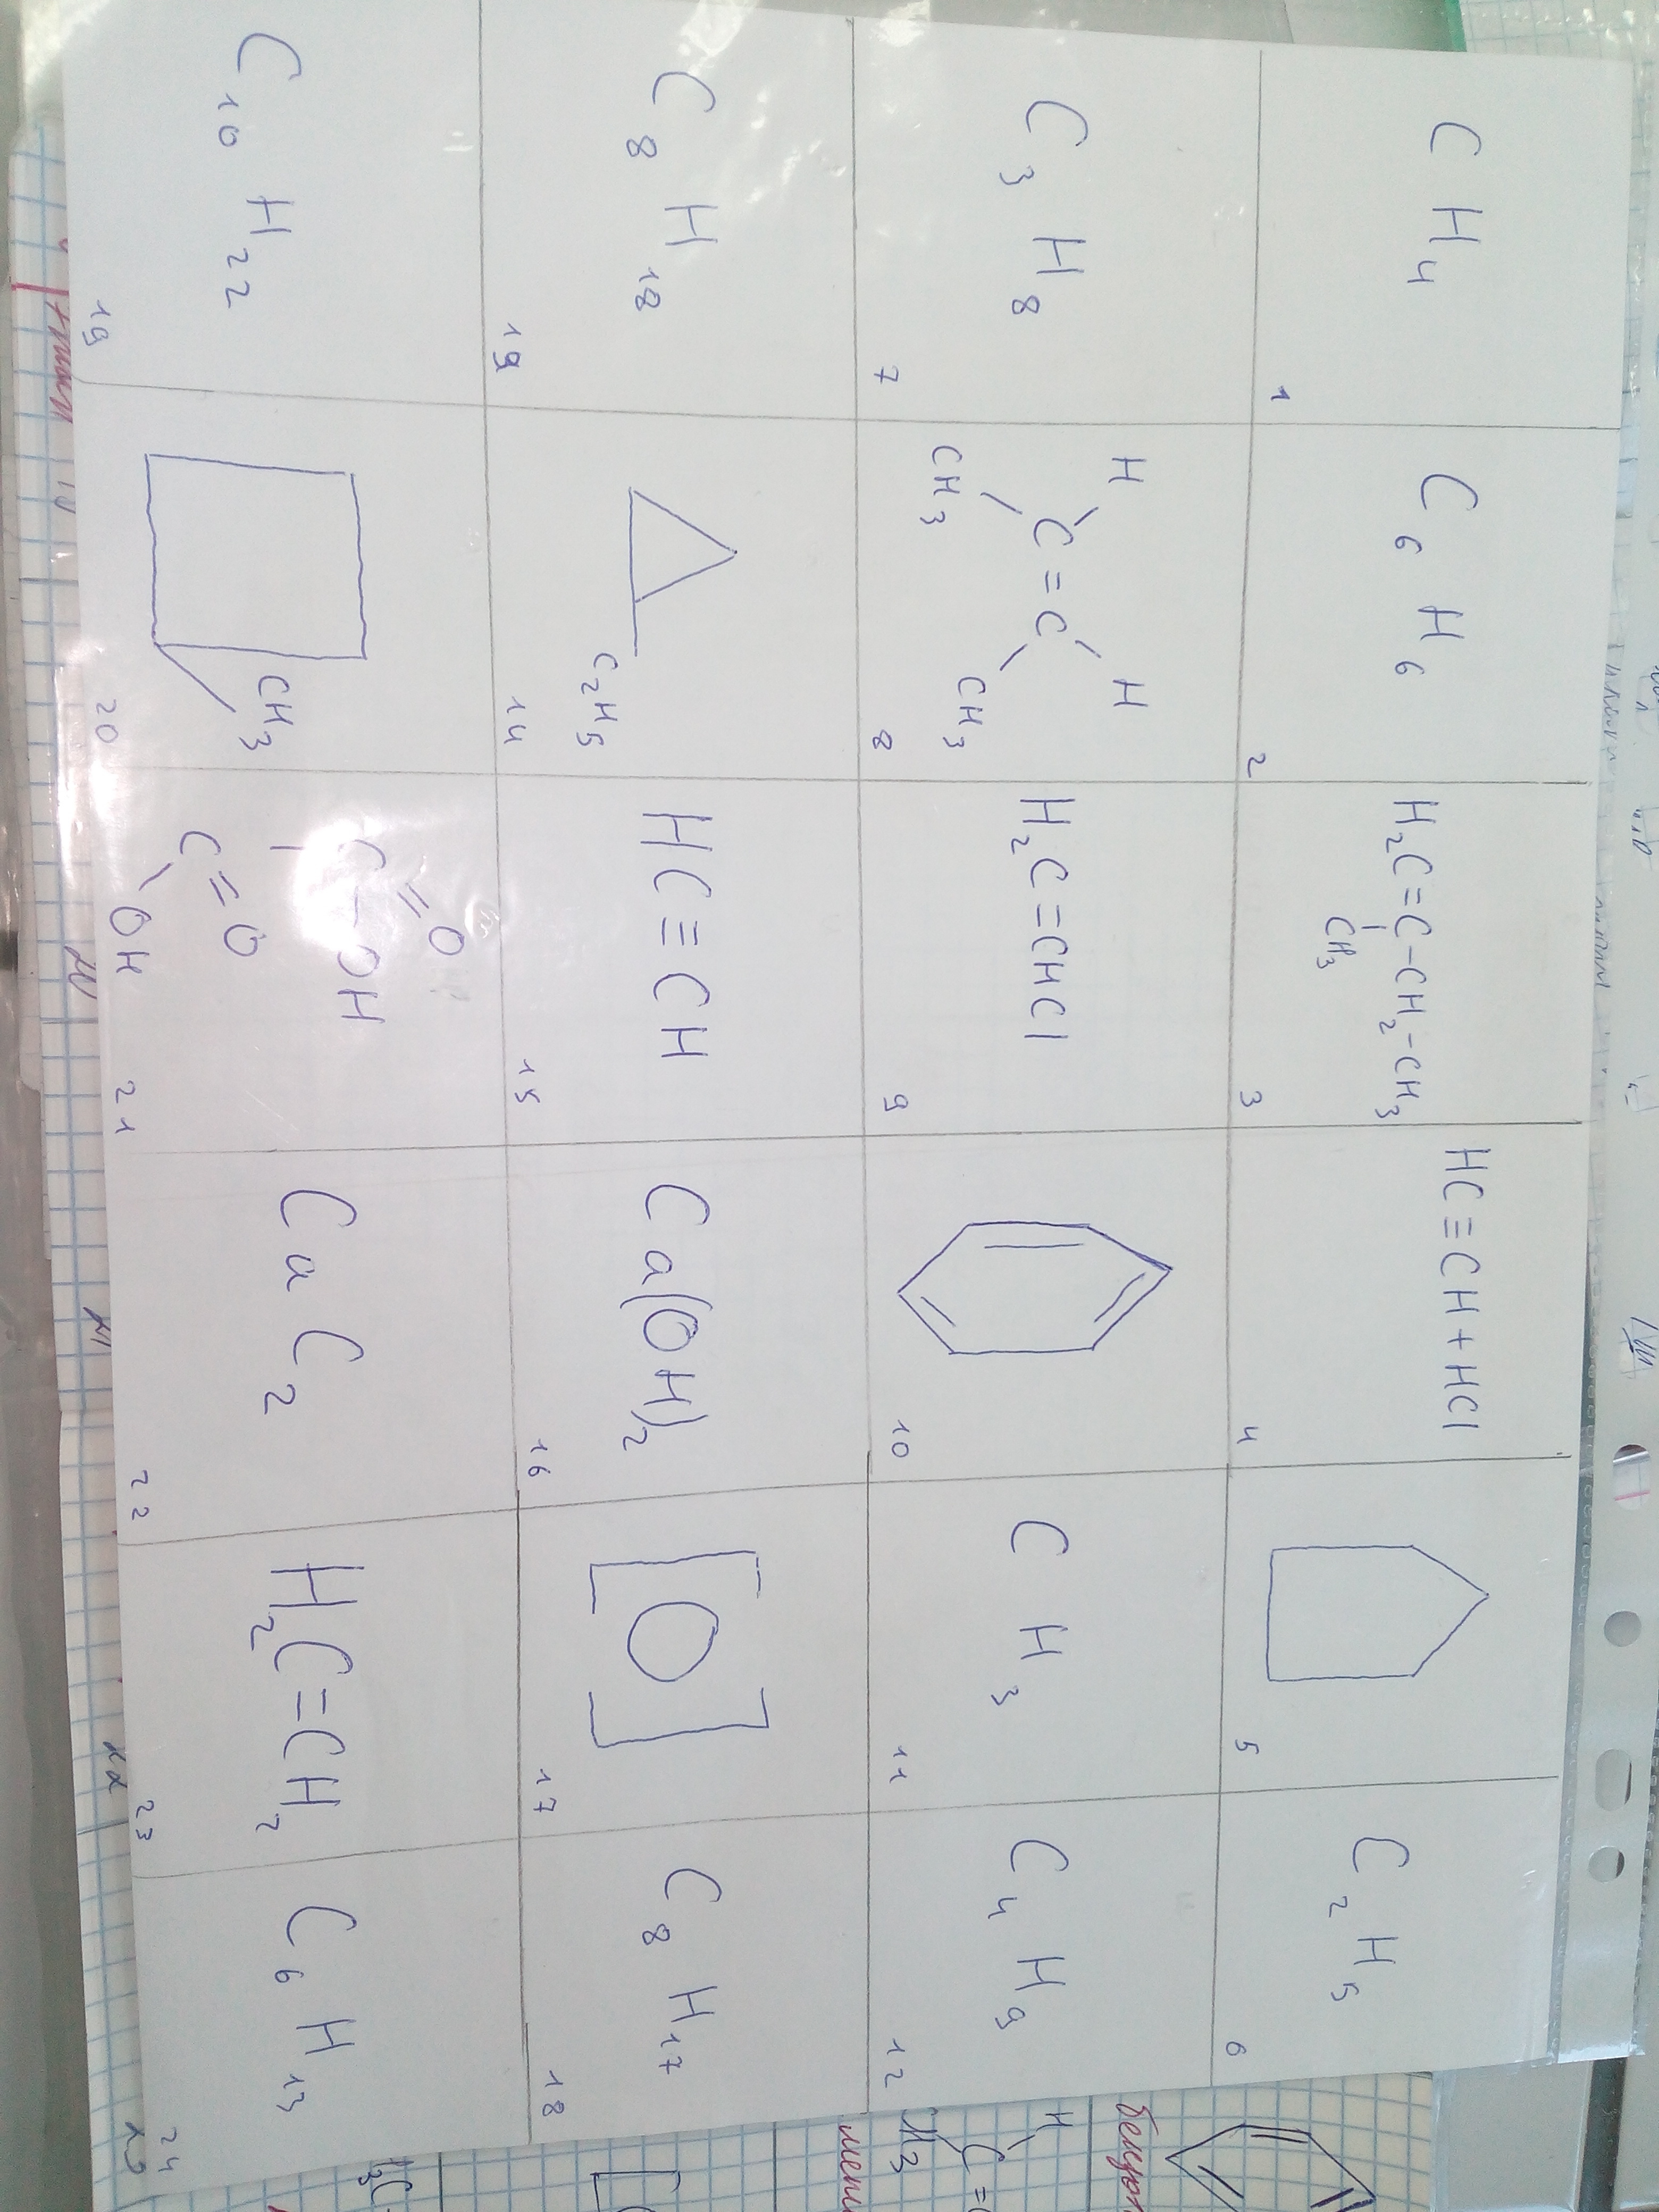 CH4
1
C6H6
2
H2C=C-CH2-CH3
CH3
3
HC≡CH+HCl
4
5
C2H5
6
C3H8
7
H H
C=C
CH3 CH3
8
H2C=CHCl
9
10
CH3
11
C4H9
12
C8H18
19
C2H5
14
HC≡CH
15
Ca(OH)2
16
[O]
17
C8H17
18
C10H22
19
CH3
20
O
C-OH
C=O
OH
21
CaC2
22
H2C=CH2
23
C6H13
24